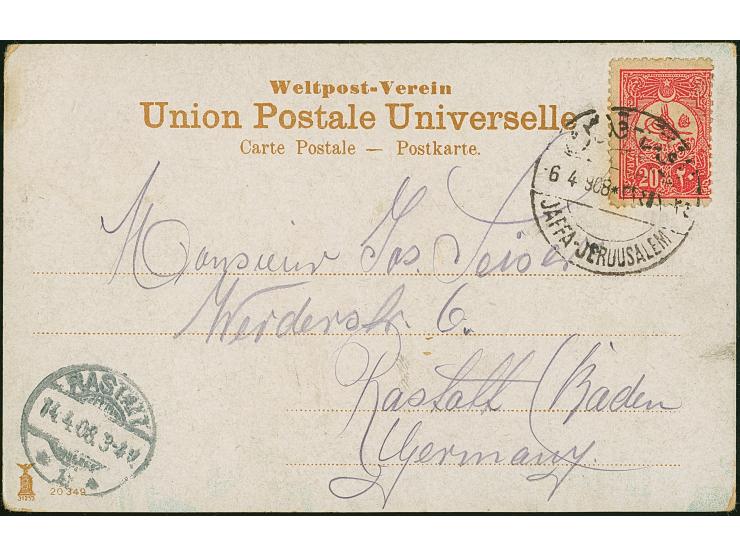 Weltpost-Verein
Union Postale Universelle
Carte Postale — Postkarte.
20 ٢٠
6 4 908*
JAFFA-JERUUSALEM
Monsieur Jos. Seiser
Werderstr. 6.
Rastatt (Baden
Germany.
RASTATT
14.4.08. 3-4N
20349